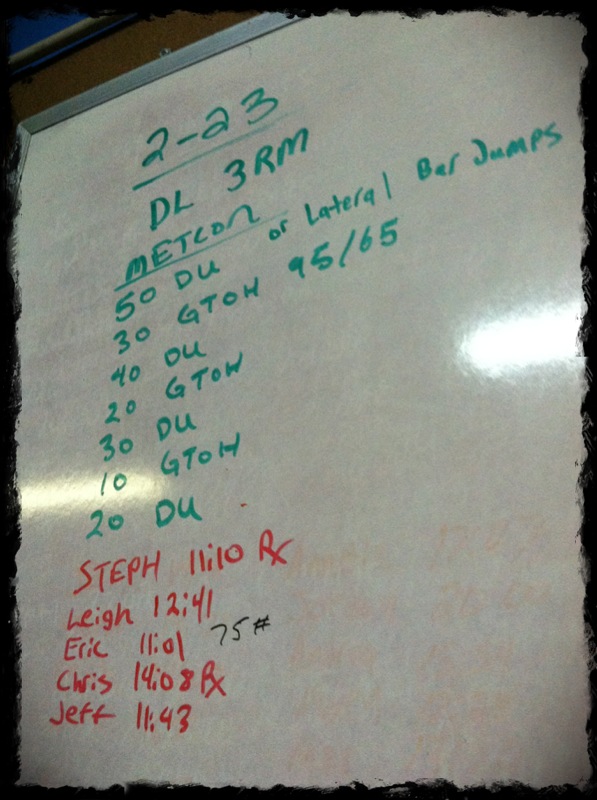 2-23
DL 3RM
METCON
50 DU or Lateral Bar Jumps
30 GTOH 95/65
40 DU
20 GTOH
30 DU
10 GTOH
20 DU
STEPH 11:10 Rx
Leigh 12:41
Eric 11:01 75#
Chris 14:08 Rx
Jeff 11:43